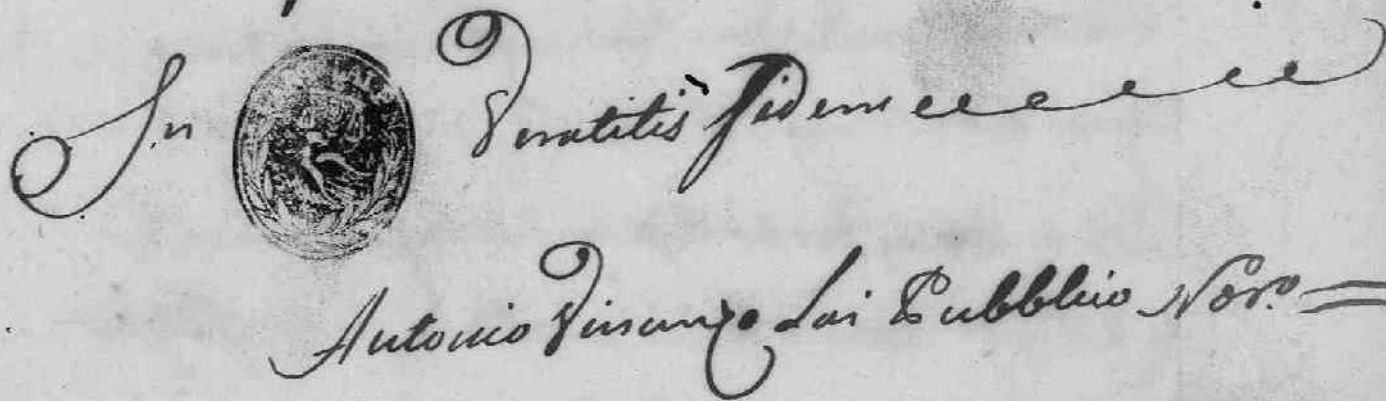 In Veratitis fidem
Antonio Vincenzo Loi Pubblico No.ro